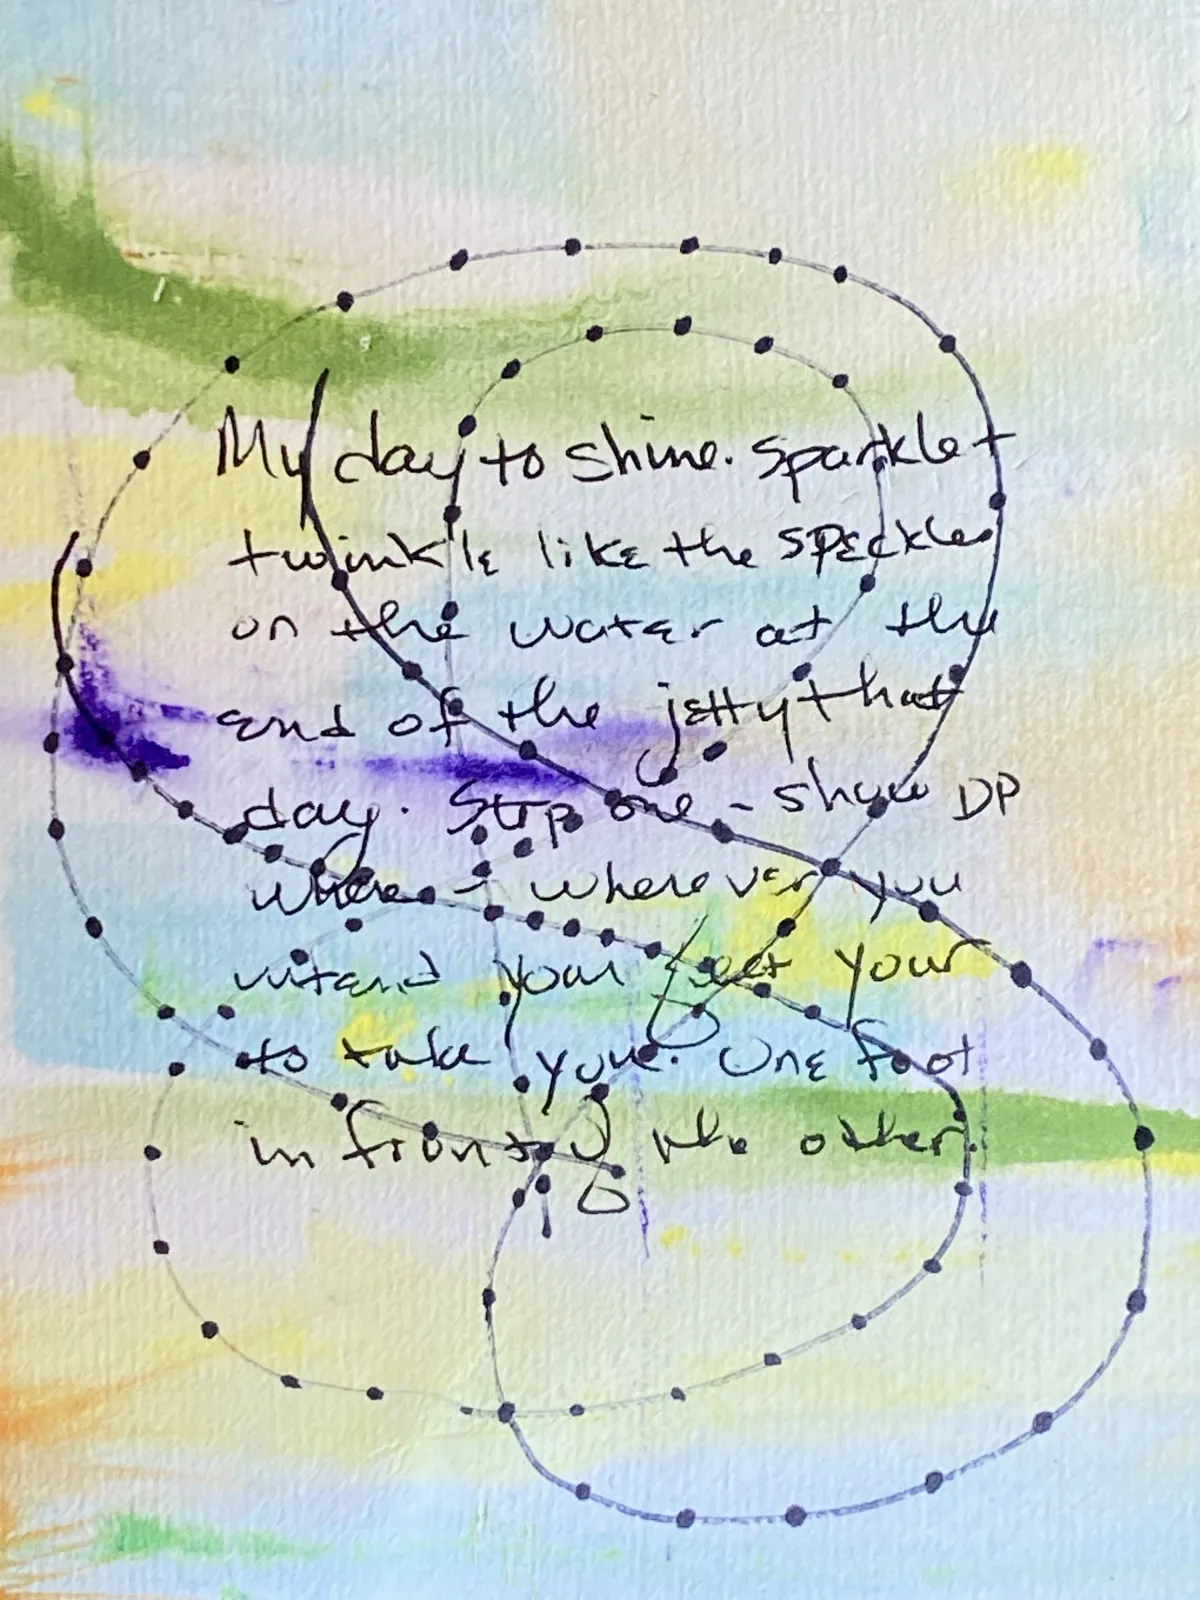 My day to shine. Sparkle +
twinkle like the speckles
on the water at the
end of the jetty that
day. Step one - show up
where - wherever you
intend your feet your
to take you. One foot
in front of the other.